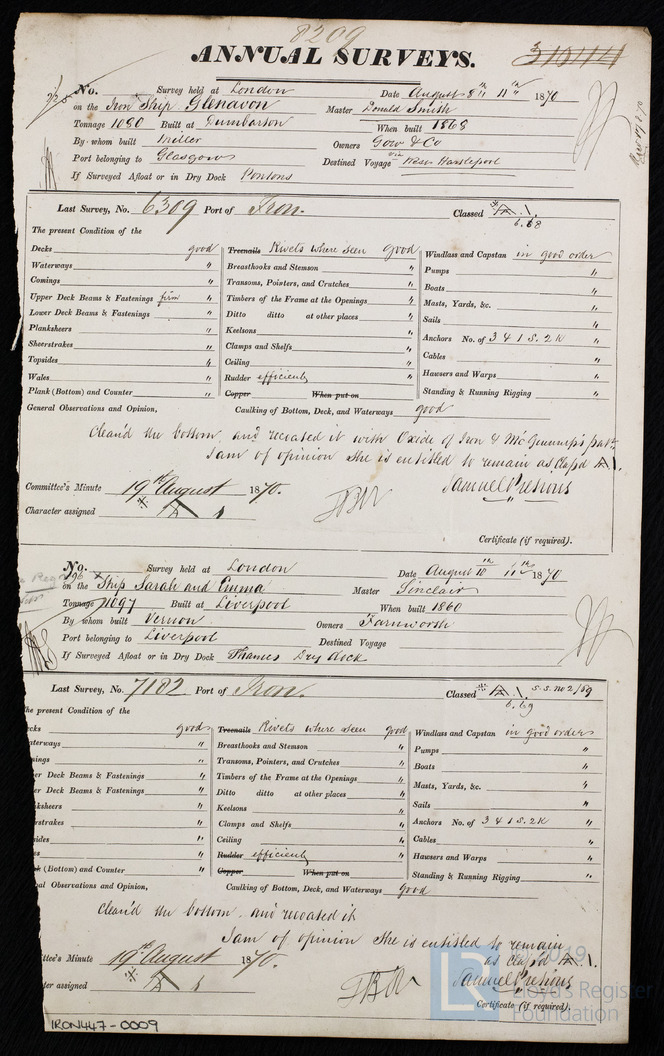 8209
ANNUAL SURVEYS.
No. Survey held at London Date August 8th 11th 1870
on the Iron Ship Glenavon Master Donald Smith
Tonnage 1080 Built at Dumbarton When built 1868
By whom built Miller Owners Gow & Co
Port belonging to Glasgow Destined Voyage via West Hartlepool
If Surveyed Afloat or in Dry Dock Pontons
Last Survey, No. 6309 Port of Iron. Classed A 1.
6.68
The present Condition of the
Decks good Treenails Rivets where seen Good Windlass and Capstan in good order
Waterways " Breasthooks and Stemson " Pumps "
Comings " Transoms, Pointers, and Crutches " Boats "
Upper Deck Beams & Fastenings firm " Timbers of the Frame at the Openings " Masts, Yards, &c. "
Lower Deck Beams & Fastenings " Ditto ditto at other places " Sails "
Planksheers " Keelsons " Anchors No. of 3 4 1 S. 2 K "
Sheerstrakes " Clamps and Shelfs " Cables "
Topsides " Ceiling " Hawsers and Warps "
Wales " Rudder efficient " Standing & Running Rigging "
Plank (Bottom) and Counter " Copper When put on
General Observations and Opinion, Caulking of Bottom, Deck, and Waterways good
Clean'd the bottom, and recoated it with Oxide of Iron &
I am of opinion she is entitled to remain as Class'd A 1.
Committee's Minute 19th August 1870.
Character assigned A 1
Certificate (if required).
No. Survey held at London Date August 10th 11th 1870
on the Ship Sarah and Emma Master Sinclair
Tonnage 1097 Built at Liverpool When built 1860
By whom built Vernon Owners Farnworth
Port belonging to Liverpool Destined Voyage
If Surveyed Afloat or in Dry Dock Thames Dry dock
Last Survey, No. 7182 Port of Iron. Classed A 1. S.S. No 2/69
6.69
he present Condition of the
cks good Treenails Rivets where seen good Windlass and Capstan in good order
aterways " Breasthooks and Stemson " Pumps "
nings " Transoms, Pointers, and Crutches " Boats "
er Deck Beams & Fastenings " Timbers of the Frame at the Openings " Masts, Yards, &c. "
er Deck Beams & Fastenings " Ditto ditto at other places " Sails "
ksheers " Keelsons " Anchors No. of 3 4 1 S. 2 K "
rstrakes " Clamps and Shelfs " Cables "
sides " Ceiling " Hawsers and Warps "
es " Rudder efficient " Standing & Running Rigging "
k (Bottom) and Counter " Copper When put on
al Observations and Opinion, Caulking of Bottom, Deck, and Waterways good
Clean'd the bottom, and recoated it
I am of opinion she is entitled to remain
as Class'd A 1.
ttee's Minute 19th August 1870.
ter assigned A 1
Certificate (if required).
IRON447-0009
© 2019
LR Lloyd's Register
Foundation